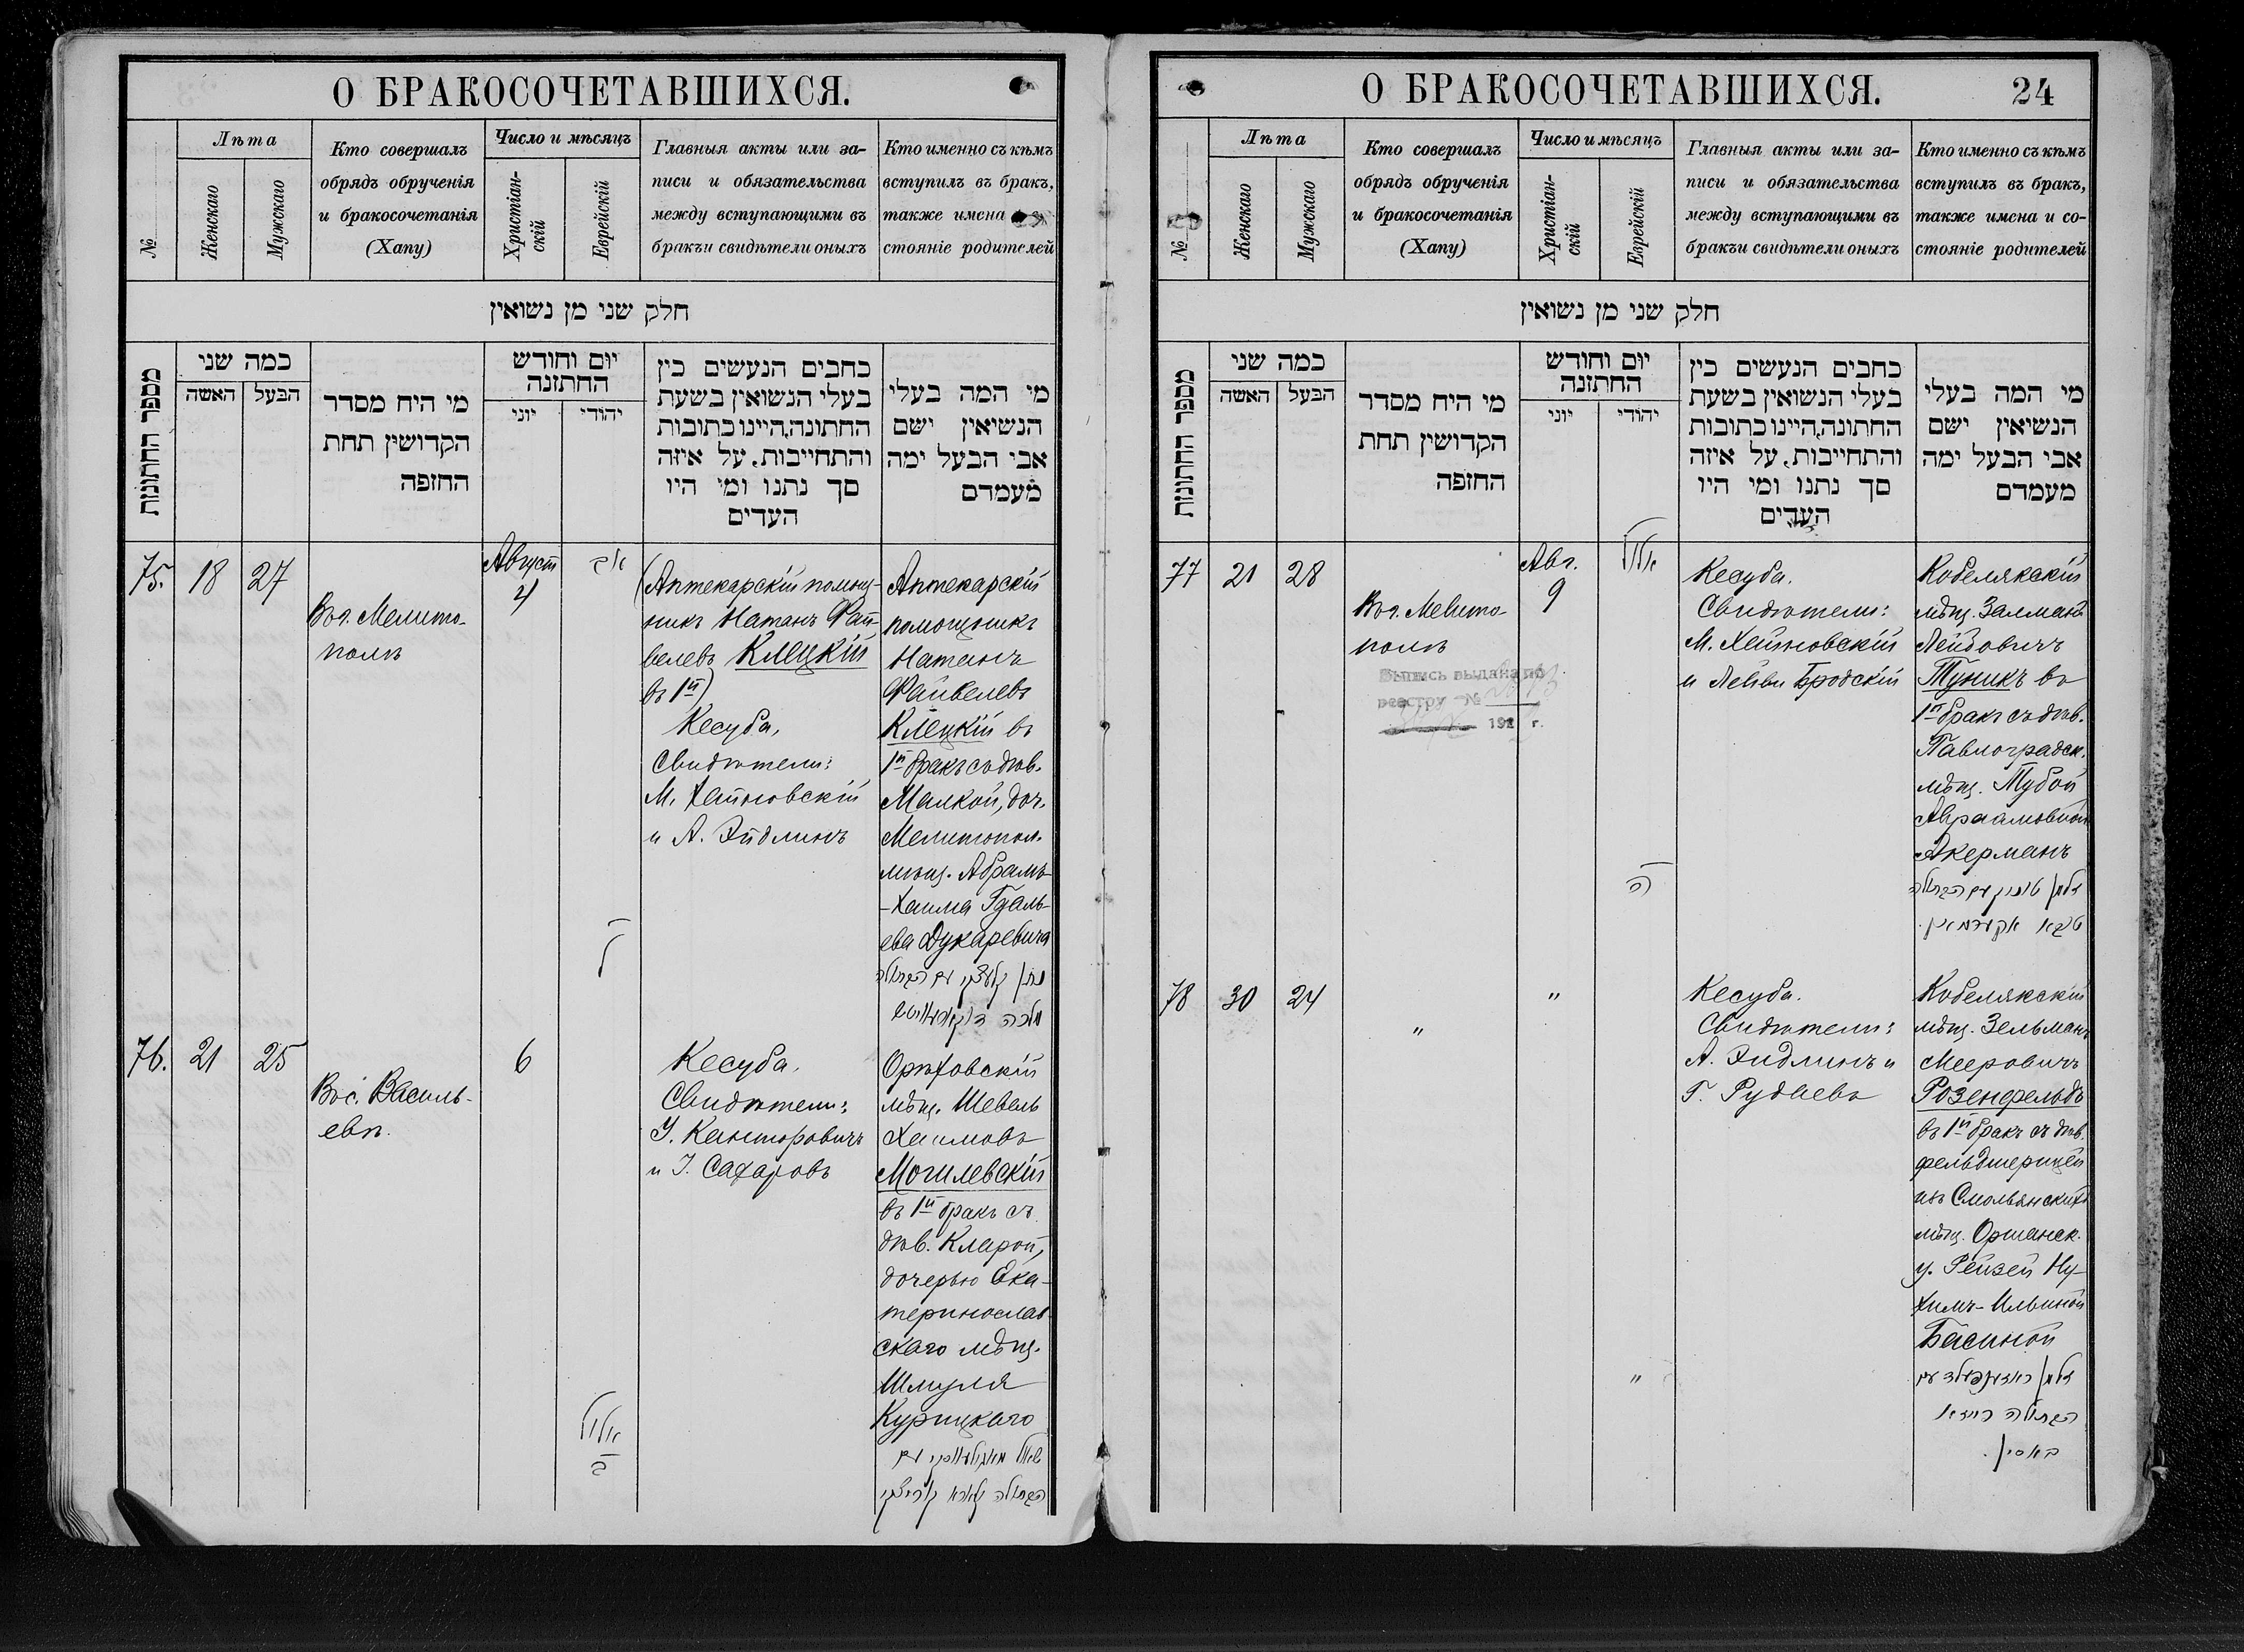 О БРАКОСОЧЕТАВШИХСЯ.
№
Лѣта
Женскаго
Мужскаго
Кто совершалъ
обрядъ обрученія
и бракосочетанія
(Хапу)
Число и мѣсяцъ
Христіан-
скій
Еврейскій
Главныя акты или за-
писи и обязательства
между вступающими въ
бракъи свидѣтели оныхъ
Кто именно съ кѣмъ
вступилъ въ бракъ,
также имена
стояніе родителей
חלק שני מן נשואין
מספר החתונות
כמה שני
האשה
הבעל
מי היח מסדר
הקדושין תחת
החופה
יום וחודש
החתזנה
יוני
יהודי
כחבים הנעשים כין
בעלי הנשואין בשעת
החתונה, היינו כתובות
והתחייבות, על איזה
סך נתנו ומי היו
העדים
מי המה בעלי
הנשיאין ישם
אבי הבעל ימה
מעמדם
75.
18
27
Въ г. Мелито-
полѣ
Август
4
אב
ל
(Аптекарскій помощ-
никъ Натанъ Фай-
велевъ Клецкій
въ 1й)
Кесуба,
Свидѣтели:
М. Хайновскій
и А. Эйдлинъ
Аптекарскій
помощникъ
Натанъ
Файвелевъ
Клецкій въ
1й бракъ съ дѣв.
Малкой, доч.
Мелитопол.
мѣщ. Абрамъ-
-Хаима Гдаль-
ева Дукаревича
נתן קלעצקי עם הבתולה
מלכה
76.
21
25
Въ с. Василь-
евк.
6
אלול
ב
Кесуба.
Свидѣтели:
У. Канторовичъ
и І. Сахаровъ
Орѣховскій
мѣщ. Шевель
Хаимовъ
Могилевскій
въ 1й бракъ съ
дѣв. Кларой,
дочерью Ека-
теринослав-
скаго мѣщ.
Шмуля
Курицкаго
שאול מאגילעווסקי עם
הבתולה קלארא קוריצקי
О БРАКОСОЧЕТАВШИХСЯ.
24
№
Лѣта
Женскаго
Мужскаго
Кто совершалъ
обрядъ обрученія
и бракосочетанія
(Хапу)
Число и мѣсяцъ
Христіан-
скій
Еврейскій
Главныя акты или за-
писи и обязательства
между вступающими въ
бракъи свидѣтели оныхъ
Кто именно съ кѣмъ
вступилъ въ бракъ,
также имена и со-
стояніе родителей
חלק שני מן נשואין
מספר החתונות
כמה שני
האשה
הבעל
מי היח מסדר
הקדושין תחת
החופה
יום וחודש
החתזנה
יוני
יהודי
כחבים הנעשים כין
בעלי הנשואין בשעת
החתונה, היינו כתובות
והתחייבות, על איזה
סך נתנו ומי היו
העדים
מי המה בעלי
הנשיאין ישם
אבי הבעל ימה
מעמדם
77
21
28
Въ г. Мелито-
полѣ
Выпись выдана по
реестру №
192 г.
Авг.
9
אלול
ה
Кесуба.
Свидѣтели:
М. Хайновскій
и Лейви Бродскій
Кобелякскій
мѣщ. Залманъ
Лейбовичъ
Туникъ въ
1й бракъ съ дѣв.
Павлоградск.
мѣщ. Тубой
Авраамовной
Акерманъ
זלמן טוניק עם הבתולה
טבא אקערמאין.
78
30
24
"
"
"
Кесуба.
Свидѣтели:
А. Эйдлинъ и
Г. Рудаевъ
Кобелякскій
мѣщ. Зельманъ
Мееровичъ
Розенфельдъ
въ 1й бракъ съ дѣв.
фельдшерицей
изъ Смольянскихъ
мѣщ. Оршанск.
у. Рейзей Ну-
химъ-Ильиной
Басиной
זלמן ראזענפעלד עם
הבתולה רייזא
באסין.